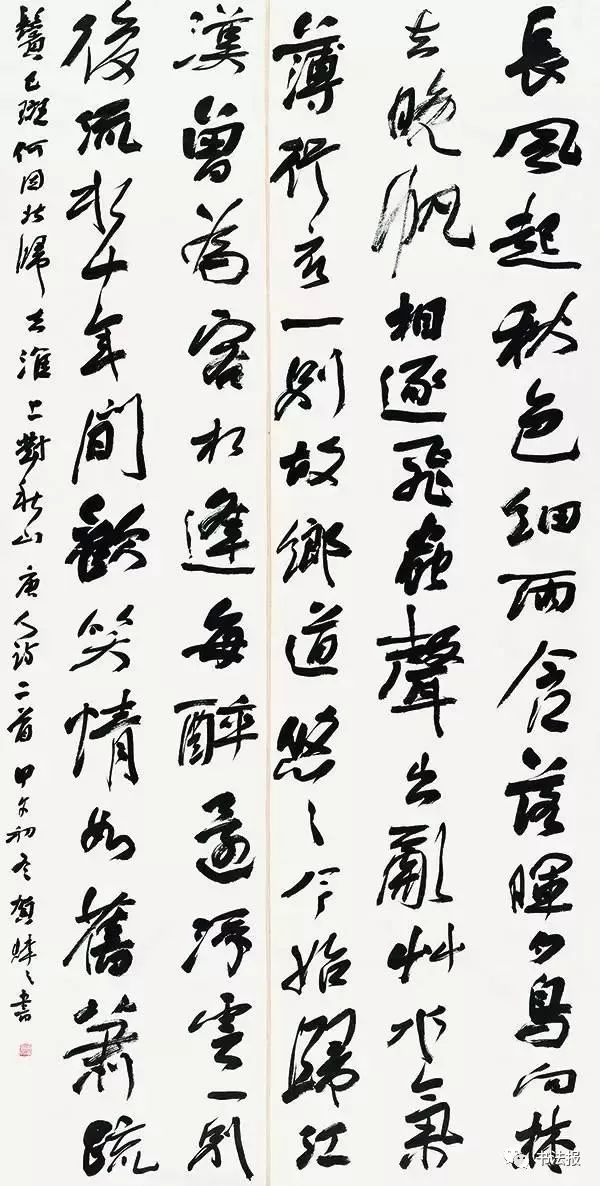 長風起秋色細雨含落暉夕鳥向林
去晚帆相逐飛蟲聲出亂艸水氣
薄行衣一別故鄉道悠〻今始歸江
漢曾為客相逢每醉還浮雲一別
後流水十年間歡笑情如舊蕭疏
鬢已斑何因北歸去淮上對秋山 唐人詩二首 甲午初冬 賀書
书法报